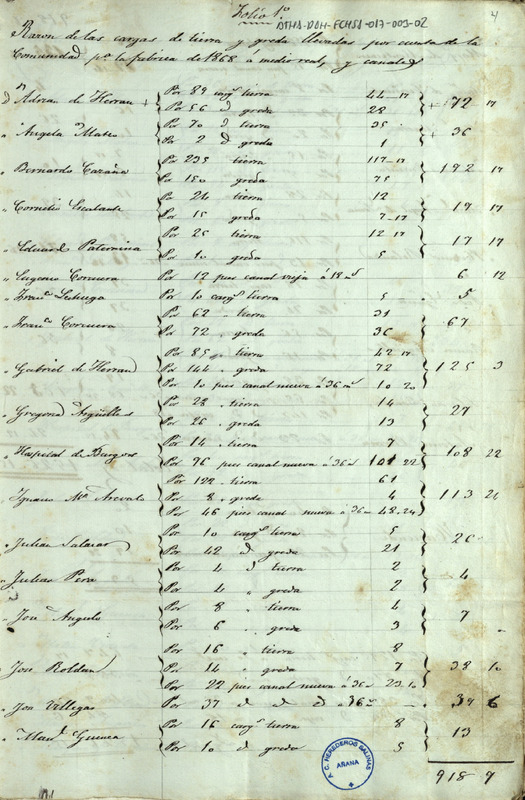 Folio 1º
ATHA-DAH-FCHSA-017-003-02
4
Razon de las cargas de tierra y greda llevadas por cuenta de la
Comunidad pª la fabrica de 1868 á medio real, y canales
Dn Adrian de Herran + Por 89 cargs tierra 44-17
Por 56 d greda 28 + 72 17
" Angela Mateo Por 70 d tierra 35
Por 2 d greda 1 + 36
" Bernardo Cazaña Por 235 tierra 117-17
Por 150 greda 75 192 17
" Cornelio Escalante Por 24 tierra 12
Por 15 greda 7-17 19 17
" Eduardo Paternina Por 25 tierra 12 17
Por 10 greda 5 17 17
" Eugenio Corcuera Por 12 pies canal vieja á 18 ms 6 12
" Franco Lechuga Por 10 cargs tierra 5 . 5
" Franco Corcuera Por 62 " tierra 31
Por 72 " greda 36 67
" Gabriel de Herran Por 85 " tierra 42 17
Por 144 " greda 72 125 3
Por 10 pies canal nueva á 36 ms 10 20
" Gregoria Argüelles Por 28 " tierra 14
Por 26 " greda 13 27
" Hospital de Burgos Por 14 " tierra 7
Por 76 pies canal nueva á 36 m 101 22 108 22
" Ignacio Mª Arevalo Por 122 " tierra 61
Por 8 " greda 4 113 24
Por 46 pies canal nueva á 36 m 48-24
" Julian Salazar Por 10 cargs tierra 5
Por 42 d greda 21 26
" Julian Pera Por 4 d tierra 2
Por 4 " greda 2 4
" José Angulo Por 8 " tierra 4
Por 6 " greda 3 7
" José Roldan Por 16 " tierra 8
Por 14 " greda 7 38 10
Por 22 pies canal nueva á 36 m 23-10
" José Villegas Por 37 d d d á 36 m — . 39 6
" Por 16 cargs tierra 8
Por 10 d greda 5 13
918 7
A. C. HEREDEROS SALINAS
AÑANA